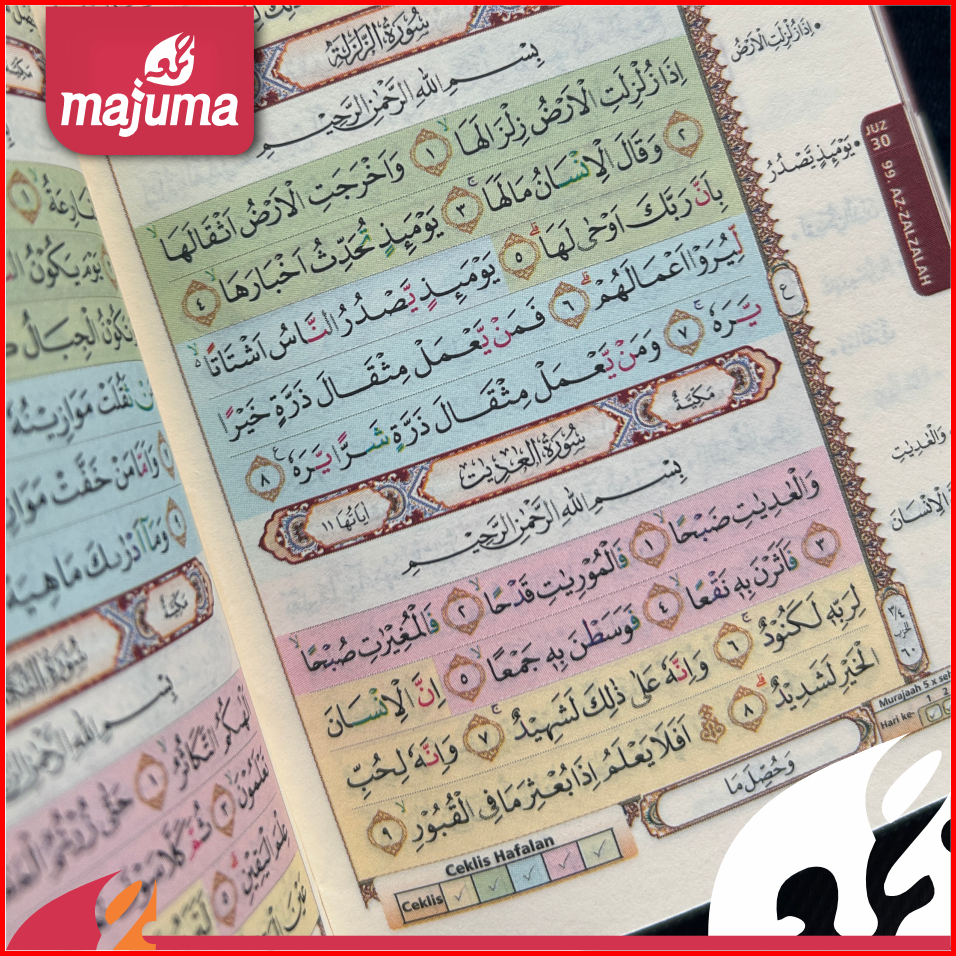 majuma
سُوْرَةُ الزَّلْزَلَةِ
بِسْمِ اللّٰهِ الرَّحْمٰنِ الرَّحِيْمِ
اِذَا زُلْزِلَتِ الْاَرْضُ زِلْزَالَهَاۙ ١ وَاَخْرَجَتِ الْاَرْضُ اَثْقَالَهَاۙ
٢ وَقَالَ الْاِنْسَانُ مَا لَهَاۚ ٣ يَوْمَىِٕذٍ تُحَدِّثُ اَخْبَارَهَاۙ ٤
بِاَنَّ رَبَّكَ اَوْحٰى لَهَاۗ ٥ يَوْمَىِٕذٍ يَّصْدُرُ النَّاسُ اَشْتَاتًا ەۙ
لِّيُرَوْا اَعْمَالَهُمْۗ ٦ فَمَنْ يَّعْمَلْ مِثْقَالَ ذَرَّةٍ خَيْرًا
يَّرَهٗۚ ٧ وَمَنْ يَّعْمَلْ مِثْقَالَ ذَرَّةٍ شَرًّا يَّرَهٗ ࣖ ٨
مَكِّيَّةٌ
سُوْرَةُ الْعٰدِيٰتِ
اٰيَاتُهَا ١١
بِسْمِ اللّٰهِ الرَّحْمٰنِ الرَّحِيْمِ
وَالْعٰدِيٰتِ ضَبْحًاۙ ١ فَالْمُوْرِيٰتِ قَدْحًاۙ ٢ فَالْمُغِيْرٰتِ صُبْحًاۙ
٣ فَاَثَرْنَ بِهٖ نَقْعًاۙ ٤ فَوَسَطْنَ بِهٖ جَمْعًاۙ ٥ اِنَّ الْاِنْسَانَ
لِرَبِّهٖ لَكَنُوْدٌۚ ٦ وَاِنَّهٗ عَلٰى ذٰلِكَ لَشَهِيْدٌۚ ٧ وَاِنَّهٗ لِحُبِّ
الْخَيْرِ لَشَدِيْدٌۗ ٨ ۞ اَفَلَا يَعْلَمُ اِذَا بُعْثِرَ مَا فِى الْقُبُوْرِۙ ٩
وَحُصِّلَ مَا
Ceklis Hafalan
Ceklis
اِذَا زُلْزِلَتِ الْاَرْضُ
يَوْمَىِٕذٍ يَّصْدُرُ
JUZ 30
99. AZ-ZALZALAH
ع
وَالْعٰدِيٰتِ
الْاِنْسَانَ
٣/٤
الحزب
٦٠
Murajaah 5 x
Hari ke-
1 2
يَوْمَ يَكُوْنُ
وَتَكُوْنُ الْجِبَالُ
ثَقُلَتْ مَوَازِيْنُهٗ
وَاَمَّا مَنْ خَفَّتْ
وَمَآ اَدْرٰىكَ مَا هِيَهْ
مَكِّيَّةٌ
اَلْهٰىكُمُ التَّكَاثُرُۙ ١ حَتّٰى زُرْتُمُ